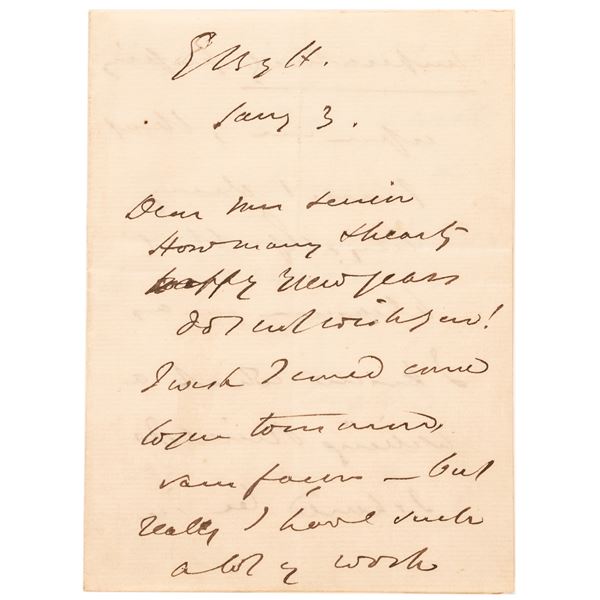 Jany 3.
Dear Mrs Senior
How many & hearty
happy New years
do I not wish you!
I wish I could come
to you tomorrow
— but
really I have such
a lot of work